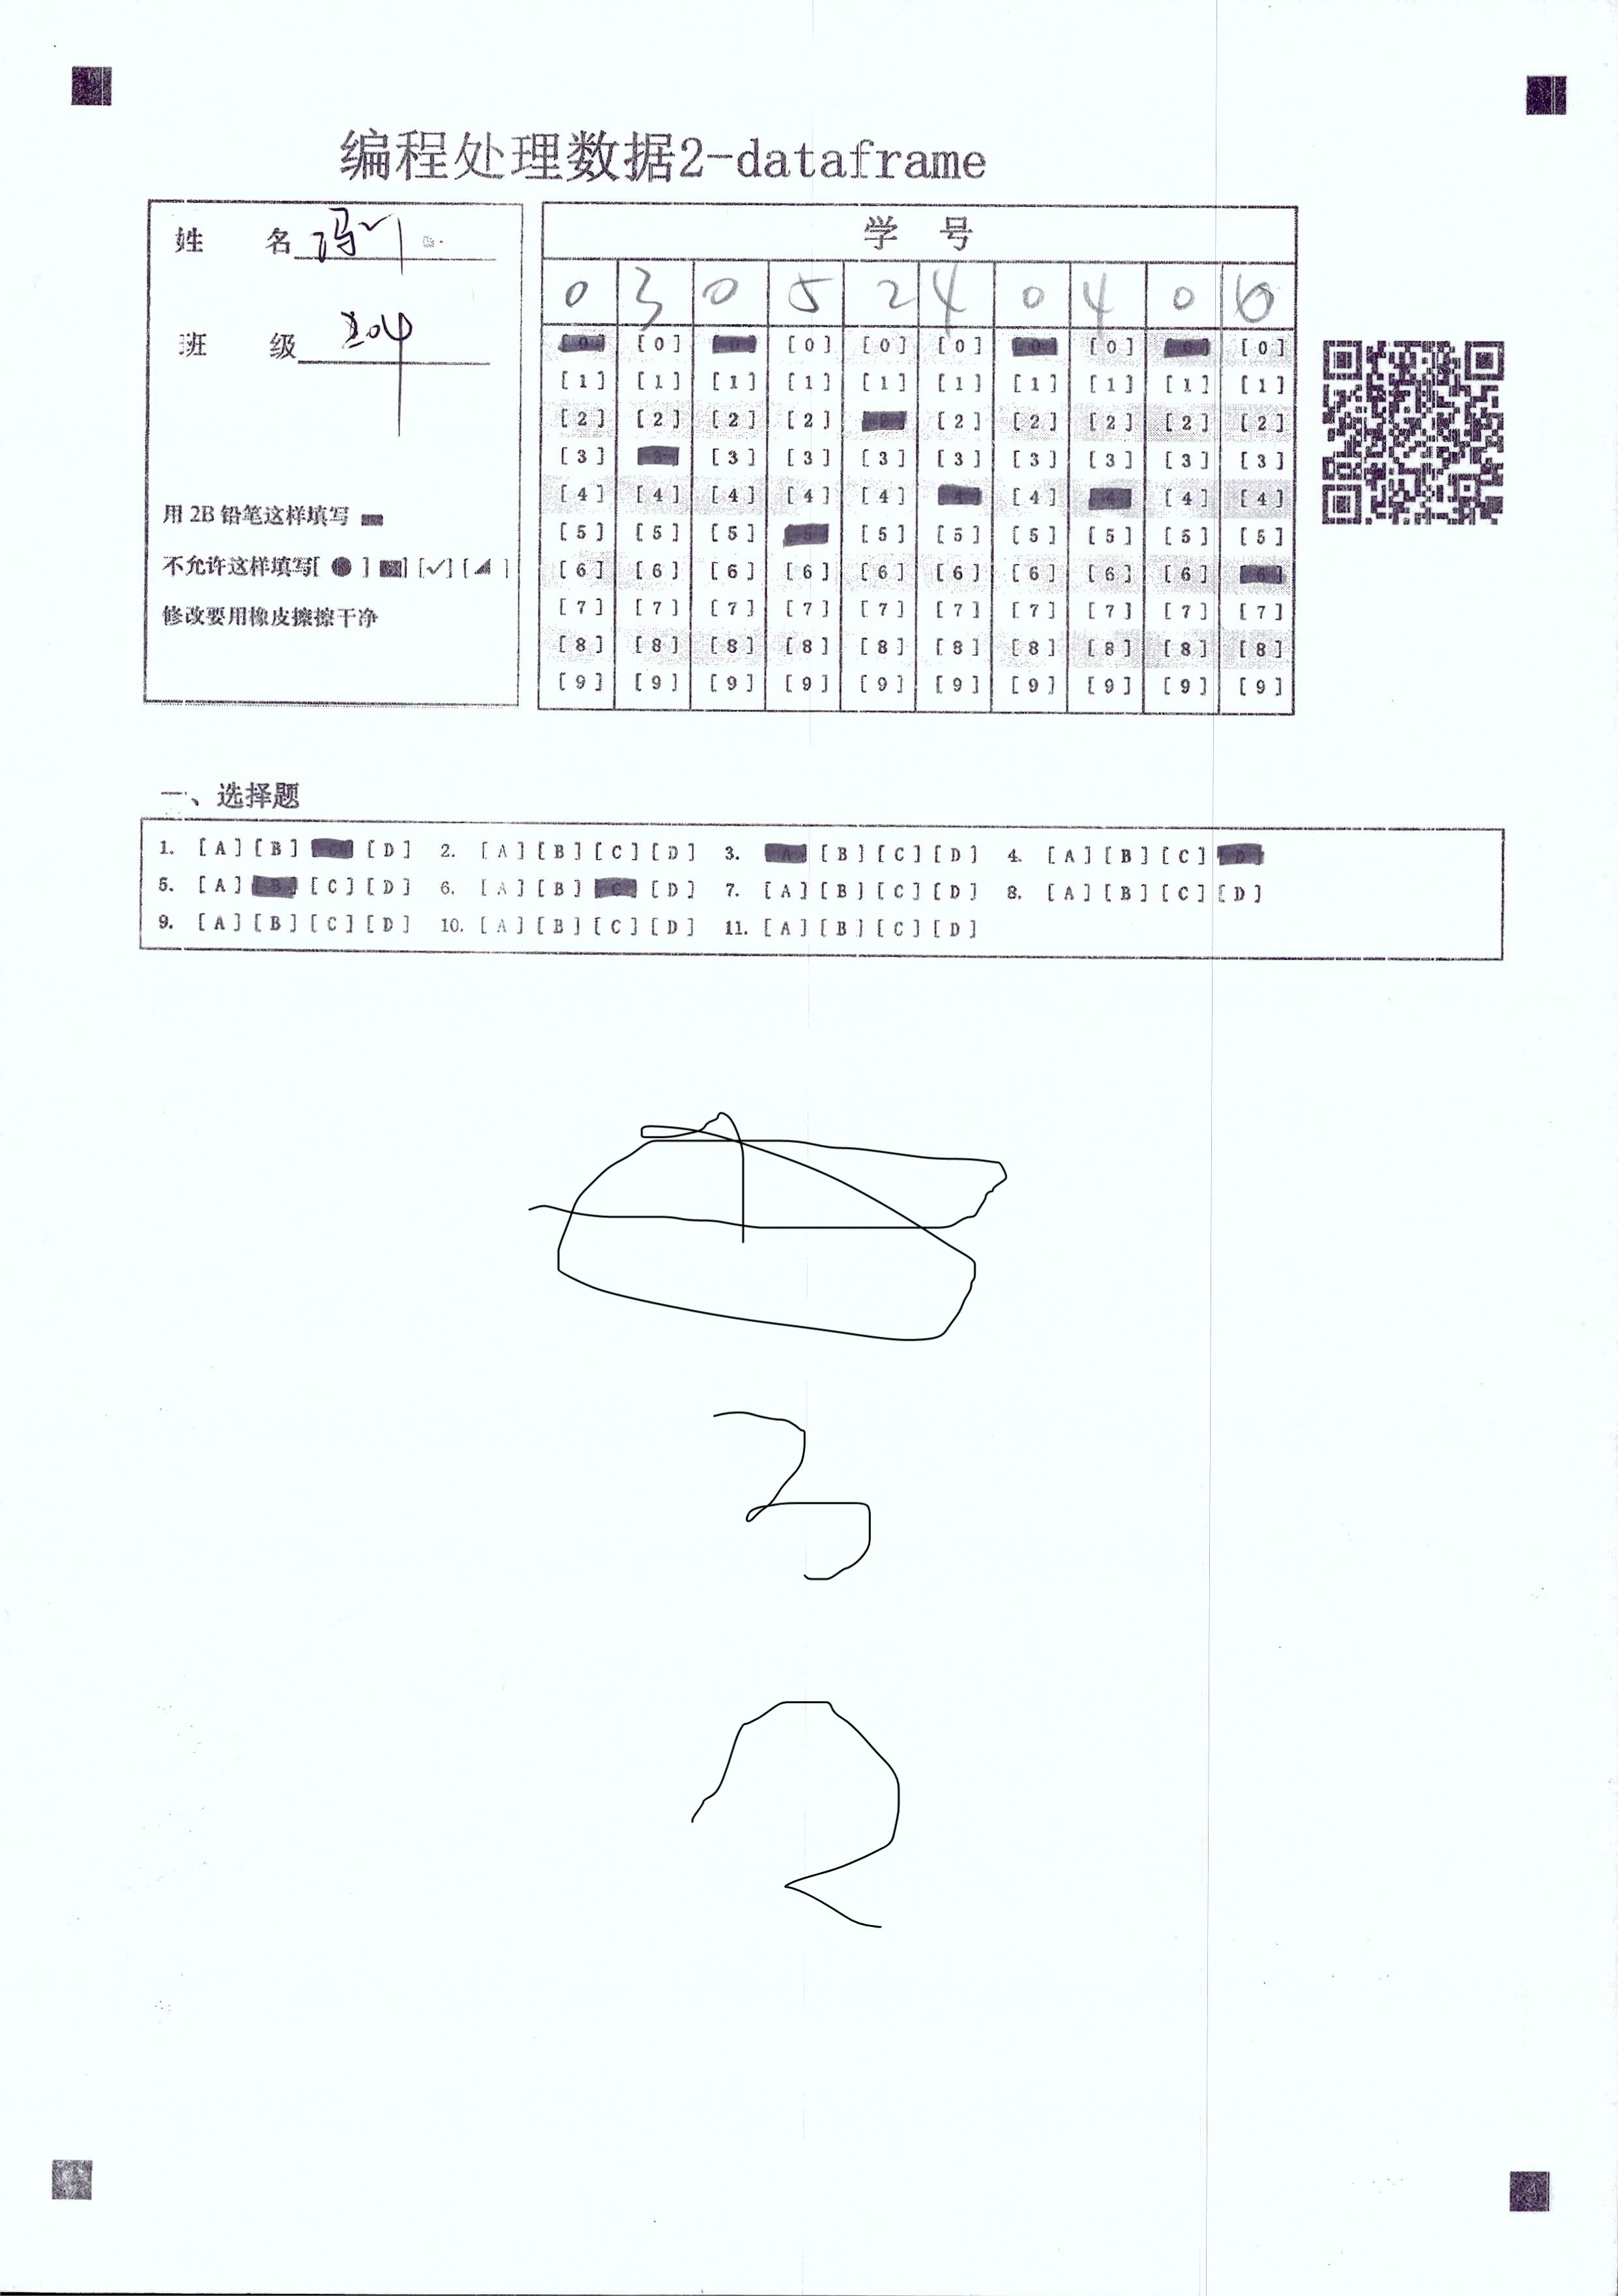 编程处理数据2-dataframe
姓 名
班 级 204
用 2B 铅笔这样填写
不允许这样填写[ ● ] [✓] [ ]
修改要用橡皮擦擦干净
学 号
0 3 0 5 2 4 0 4 0 6
[0] [0] [0] [0] [0] [0] [0] [0] [0] [0]
[1] [1] [1] [1] [1] [1] [1] [1] [1] [1]
[2] [2] [2] [2] [2] [2] [2] [2] [2] [2]
[3] [3] [3] [3] [3] [3] [3] [3] [3] [3]
[4] [4] [4] [4] [4] [4] [4] [4] [4] [4]
[5] [5] [5] [5] [5] [5] [5] [5] [5] [5]
[6] [6] [6] [6] [6] [6] [6] [6] [6] [6]
[7] [7] [7] [7] [7] [7] [7] [7] [7] [7]
[8] [8] [8] [8] [8] [8] [8] [8] [8] [8]
[9] [9] [9] [9] [9] [9] [9] [9] [9] [9]
一、选择题
1. [A] [B] [C] [D] 2. [A] [B] [C] [D] 3. [A] [B] [C] [D] 4. [A] [B] [C] [D]
5. [A] [B] [C] [D] 6. [A] [B] [C] [D] 7. [A] [B] [C] [D] 8. [A] [B] [C] [D]
9. [A] [B] [C] [D] 10. [A] [B] [C] [D] 11. [A] [B] [C] [D]